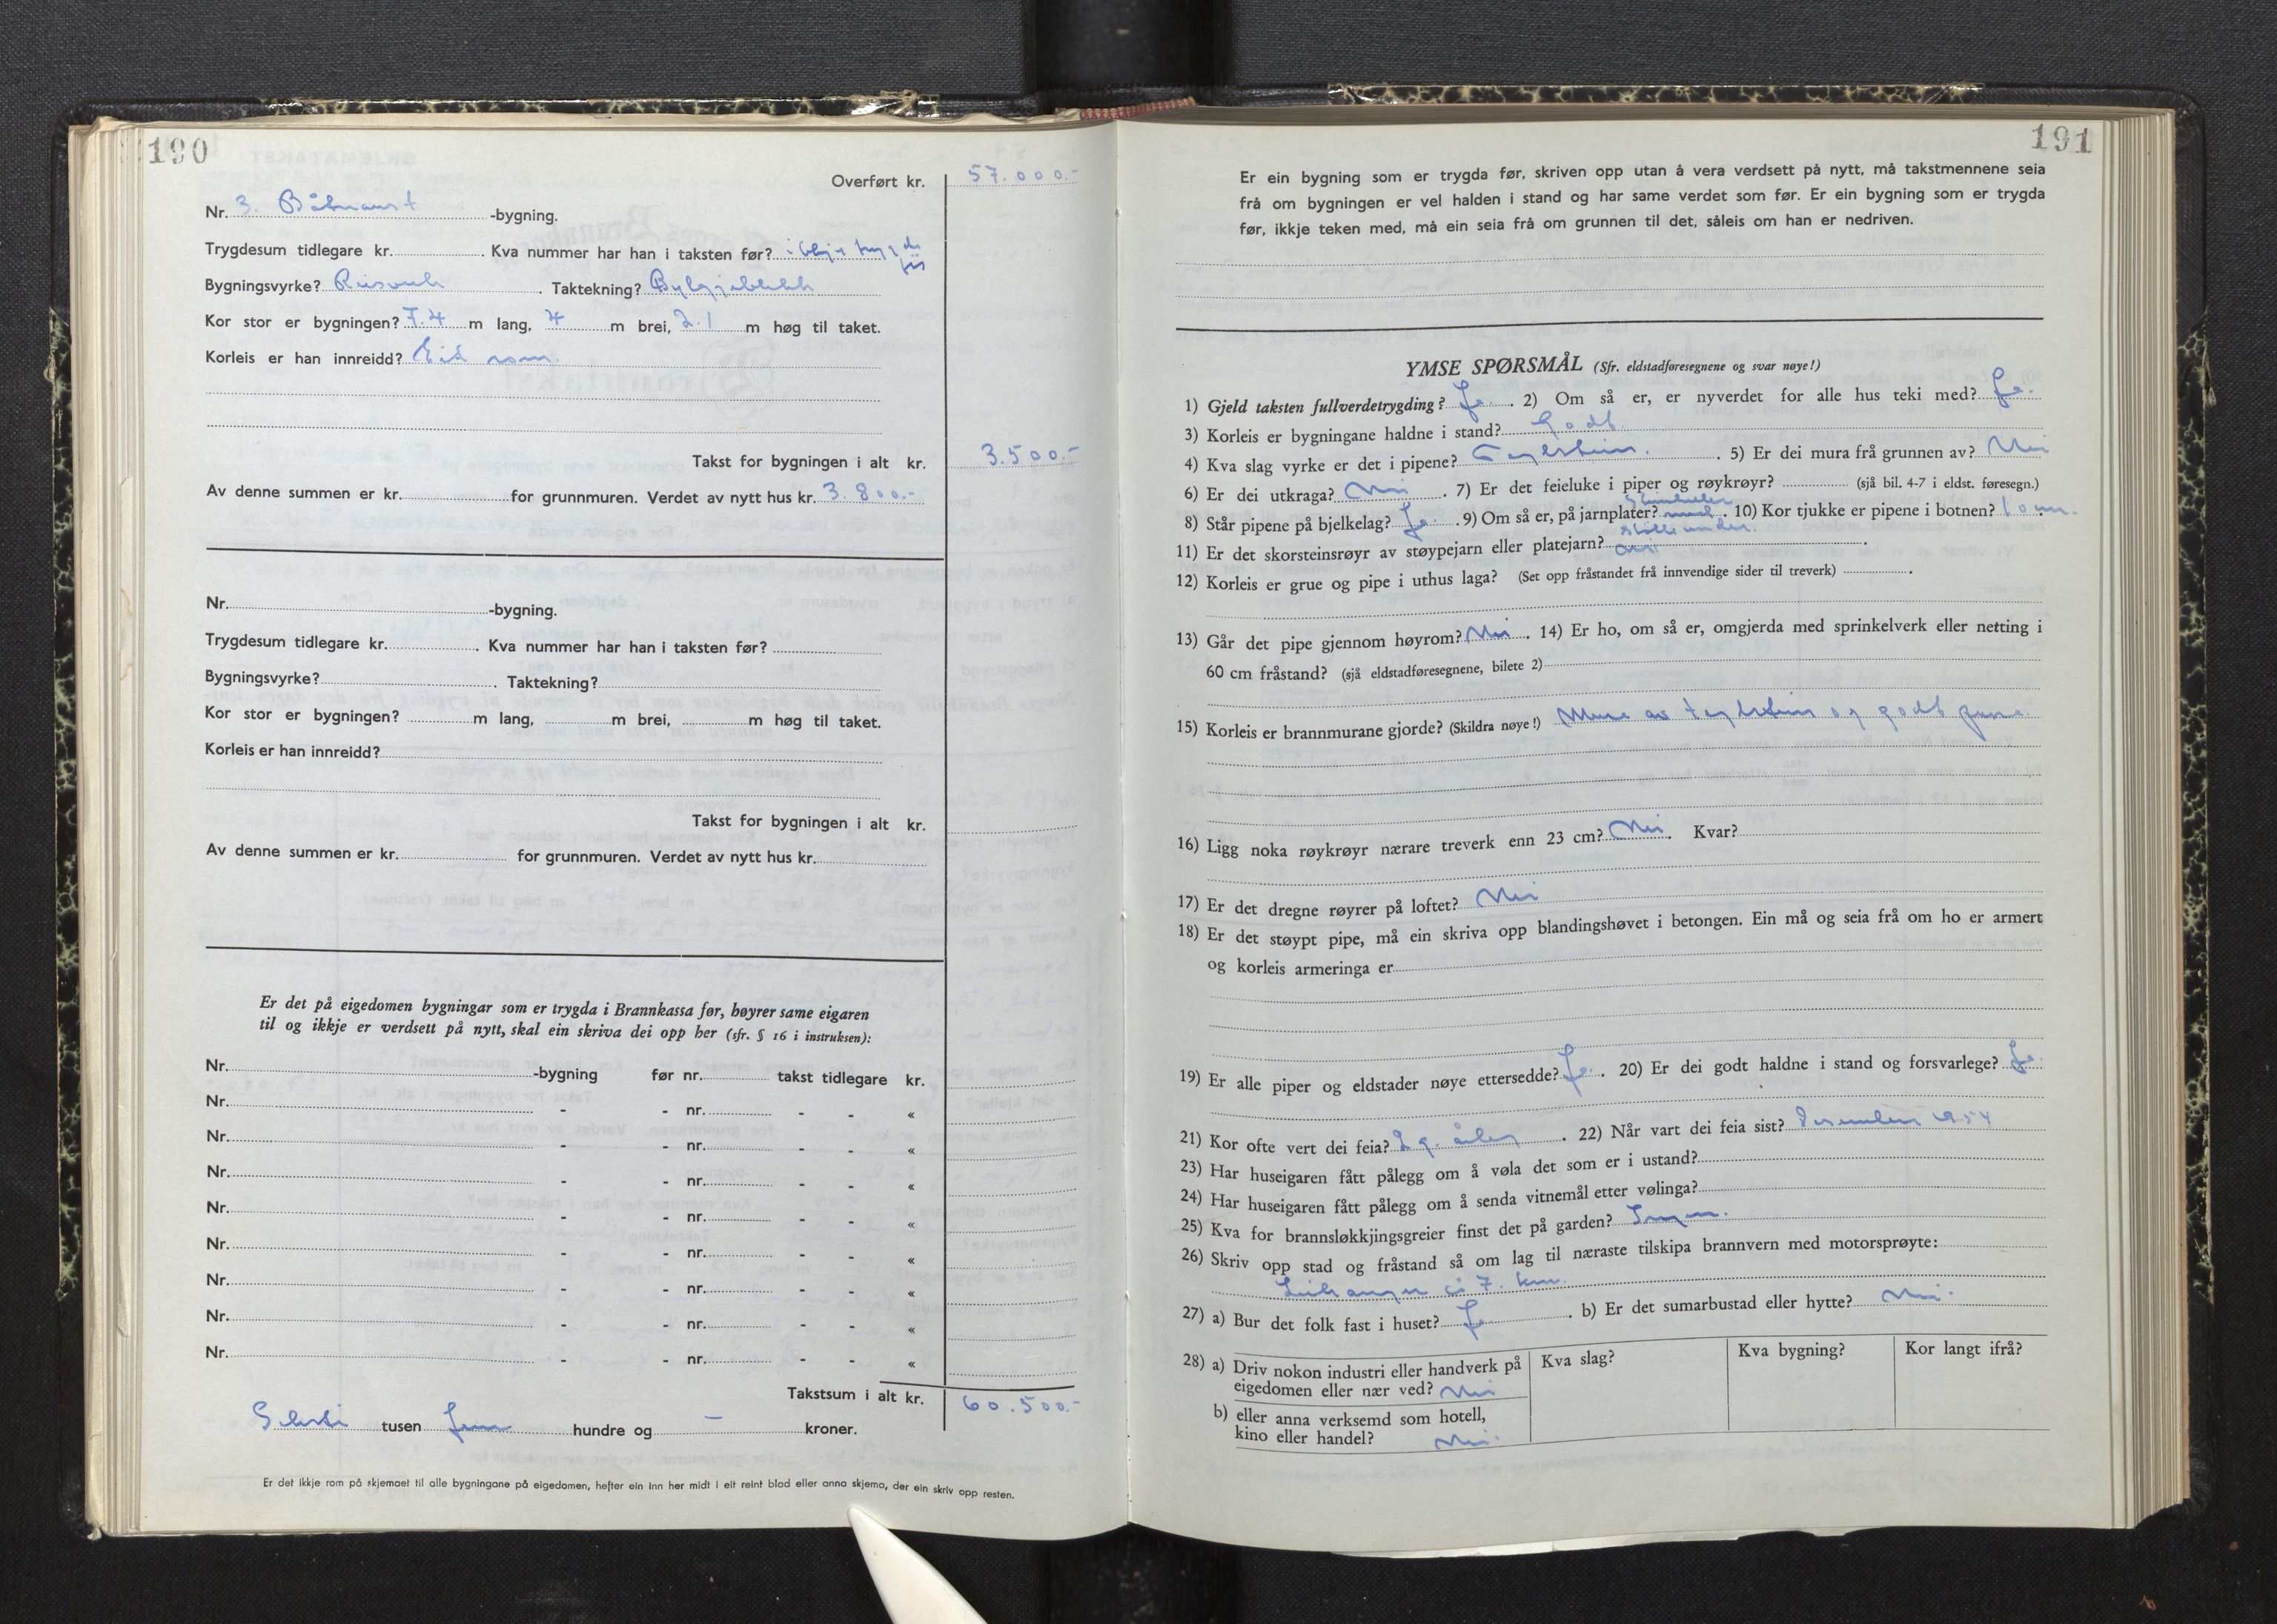 190
Overført kr. 57.000.-
Nr. 3. Båtnaust -bygning.
Trygdesum tidlegare kr. . Kva nummer har han i taksten før? ikkje trygda før
Bygningsvyrke? Reisverk . Taktekning? Bylgjeblekk
Kor stor er bygningen? 7.4 m lang, 4 m brei, 2.1 m høg til taket.
Korleis er han innreidd? Eit rom.
Takst for bygningen i alt kr. 3.500.-
Av denne summen er kr. for grunnmuren. Verdet av nytt hus kr. 3.800.-
Nr. -bygning.
Trygdesum tidlegare kr. . Kva nummer har han i taksten før?
Bygningsvyrke? . Taktekning?
Kor stor er bygningen? m lang, m brei, m høg til taket.
Korleis er han innreidd?
Takst for bygningen i alt kr.
Av denne summen er kr. for grunnmuren. Verdet av nytt hus kr.
Er det på eigedomen bygningar som er trygda i Brannkassa før, høyrer same eigaren
til og ikkje er verdsett på nytt, skal ein skriva dei opp her (sfr. § 16 i instruksen):
Nr. -bygning før nr. takst tidlegare kr.
Nr. - - nr. - - «
Nr. - - nr. - - «
Nr. - - nr. - - «
Nr. - - nr. - - «
Nr. - - nr. - - «
Nr. - - nr. - - «
Nr. - - nr. - - «
Nr. - - nr. - - «
Takstsum i alt kr. 60.500.-
Seksti tusen fem hundre og — kroner.
Er det ikkje rom på skjemaet til alle bygningane på eigedomen, hefter ein inn her midt i eit reint blad eller anna skjema, der ein skriv opp resten.
191
Er ein bygning som er trygda før, skriven opp utan å vera verdsett på nytt, må takstmennene seia
frå om bygningen er vel halden i stand og har same verdet som før. Er ein bygning som er trygda
før, ikkje teken med, må ein seia frå om grunnen til det, såleis om han er nedriven.
YMSE SPØRSMÅL (Sfr. eldstadføresegnene og svar nøye!)
1) Gjeld taksten fullverdetrygding? Ja. . 2) Om så er, er nyverdet for alle hus teki med? Ja.
3) Korleis er bygningane haldne i stand? Godt.
4) Kva slag vyrke er det i pipene? Teglstein. . 5) Er dei mura frå grunnen av? Nei
6) Er dei utkraga? Nei . 7) Er det feieluke i piper og røykrøyr? (sjå bil. 4-7 i eldst. føresegn.)
8) Står pipene på bjelkelag? Ja. . 9) Om så er, på jarnplater? Steinheller . 10) Kor tjukke er pipene i botnen? 10 cm.
11) Er det skorsteinsrøyr av støypejarn eller platejarn? .
12) Korleis er grue og pipe i uthus laga? (Set opp fråstandet frå innvendige sider til treverk) .
13) Går det pipe gjennom høyrom? Nei . 14) Er ho, om så er, omgjerda med sprinkelverk eller netting i
60 cm fråstand? (sjå eldstadføresegnene, bilete 2)
15) Korleis er brannmurane gjorde? (Skildra nøye!) Mura av teglstein og godt
16) Ligg noka røykrøyr nærare treverk enn 23 cm? Nei. Kvar?
17) Er det dregne røyrer på loftet? Nei
18) Er det støypt pipe, må ein skriva opp blandingshøvet i betongen. Ein må og seia frå om ho er armert
og korleis armeringa er
19) Er alle piper og eldstader nøye ettersedde? Ja. . 20) Er dei godt haldne i stand og forsvarlege? Ja.
21) Kor ofte vert dei feia? 2 g. årleg . 22) Når vart dei feia sist? Desember 1954
23) Har huseigaren fått pålegg om å vøla det som er i ustand?
24) Har huseigaren fått pålegg om å senda vitnemål etter vølinga?
25) Kva for brannsløkkjingsgreier finst det på garden? Ingen.
26) Skriv opp stad og fråstand så om lag til næraste tilskipa brannvern med motorsprøyte:
Leikanger ci 7. km.
27) a) Bur det folk fast i huset? Ja . b) Er det sumarbustad eller hytte? Nei.
28) a) Driv nokon industri eller handverk på
eigedomen eller nær ved? Nei
Kva slag? Kva bygning? Kor langt ifrå?
b) eller anna verksemd som hotell,
kino eller handel? Nei.